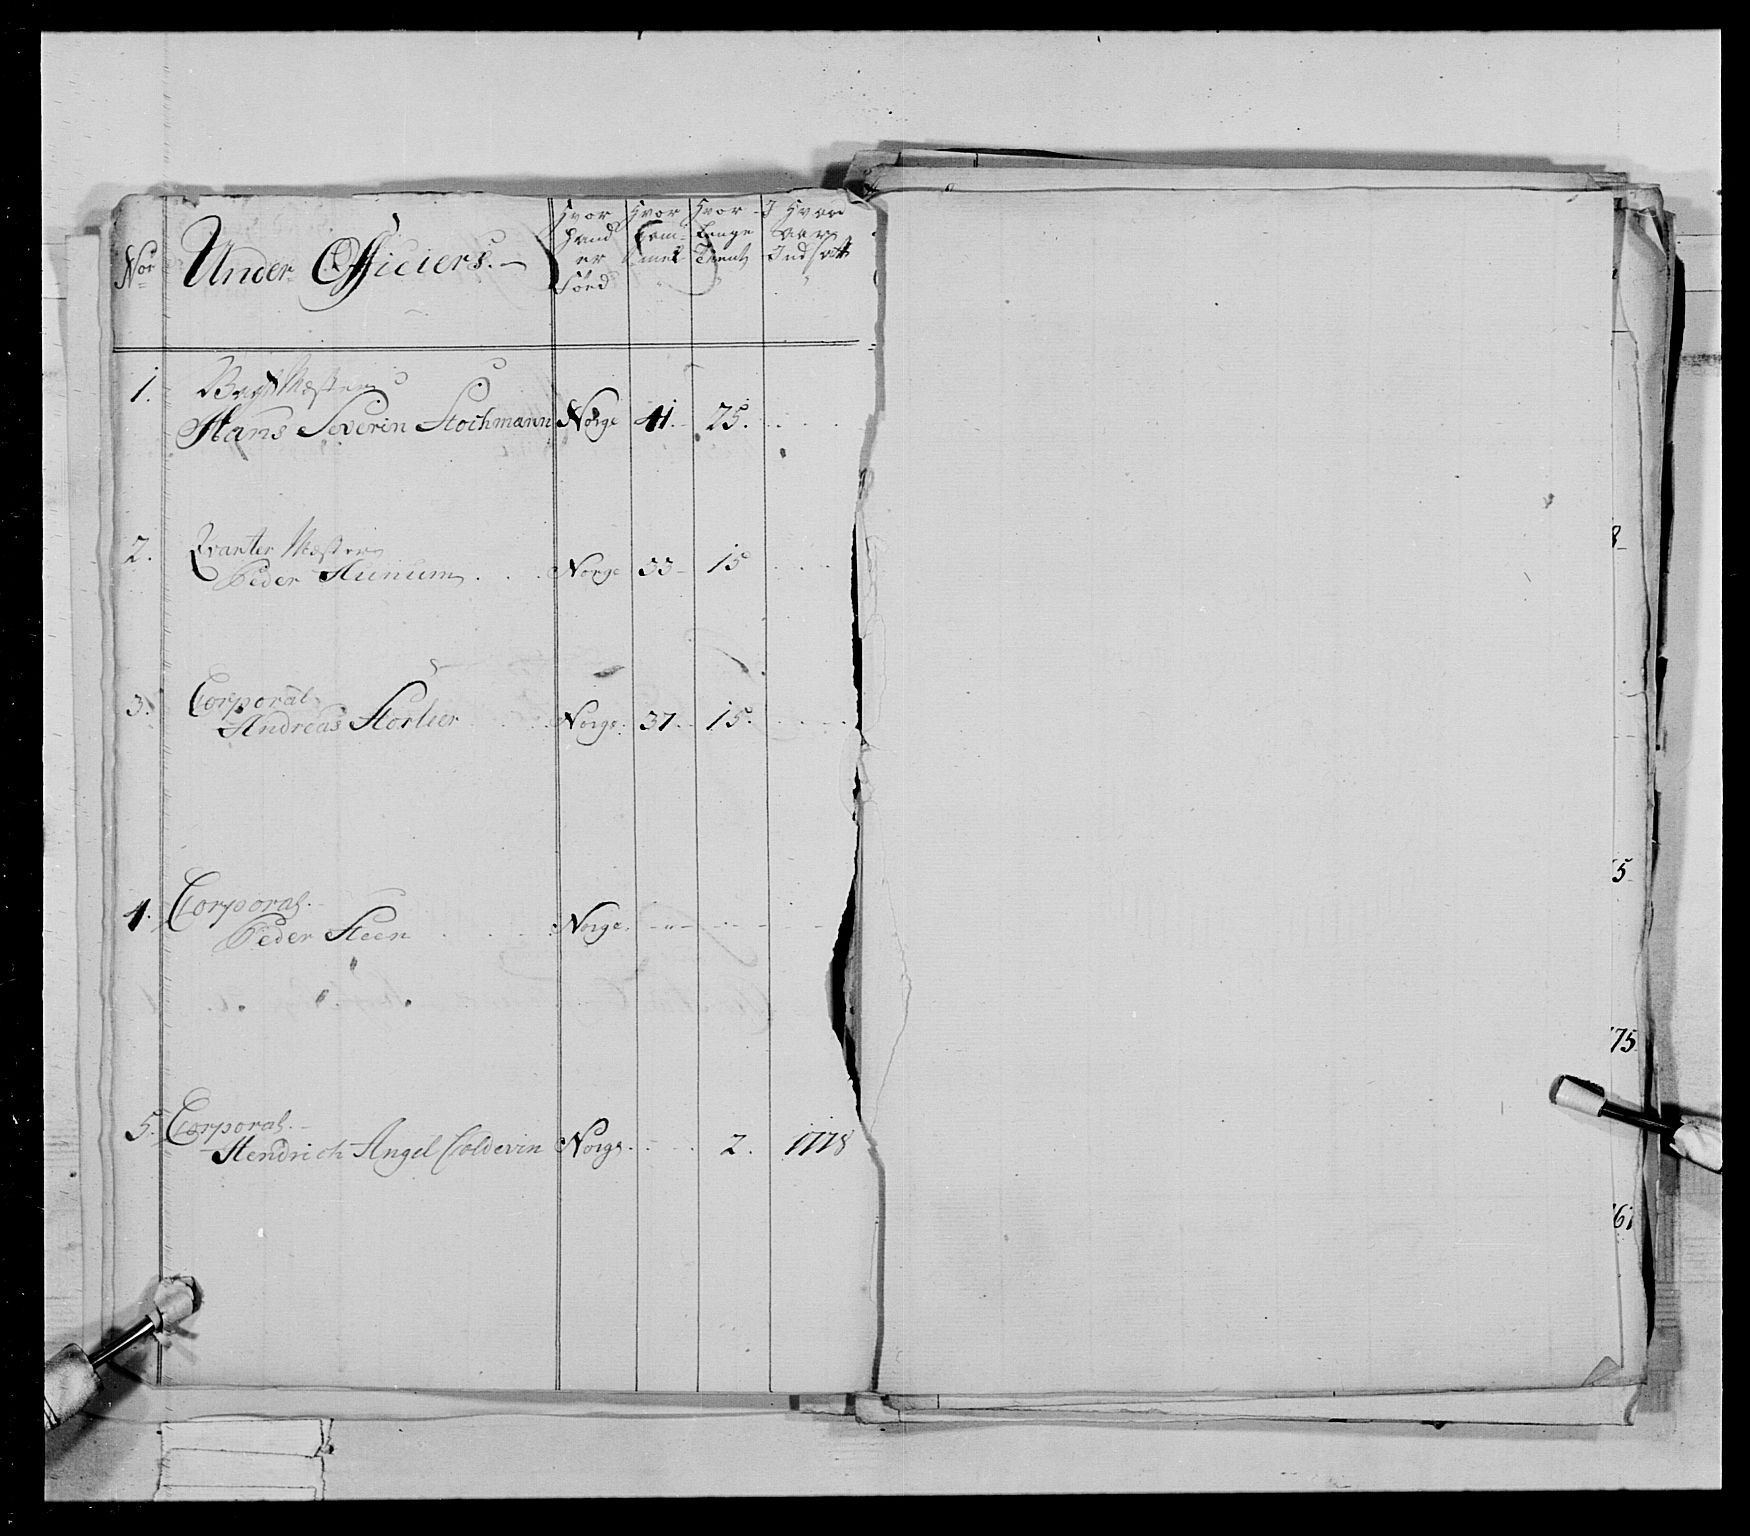 No:r Under Officiers.
Hvor Hand er Föed
Hvor Gam̄el
Hvor Lenge Tient
I Hvad Aar Indsatt
1. Mæster
Hans Severin Stochmann Norge 41. 25.
2. Qvarter Mæster
Peder Hunum Norge 33 15
3. Corporal
Andreas Storlier Norge. 37. 15.
4. Corporal.
Peder Steen Norge.
5. Corporal.
Hendrich Angel Coldevin Norge. 2. 1778
8
5
75
61